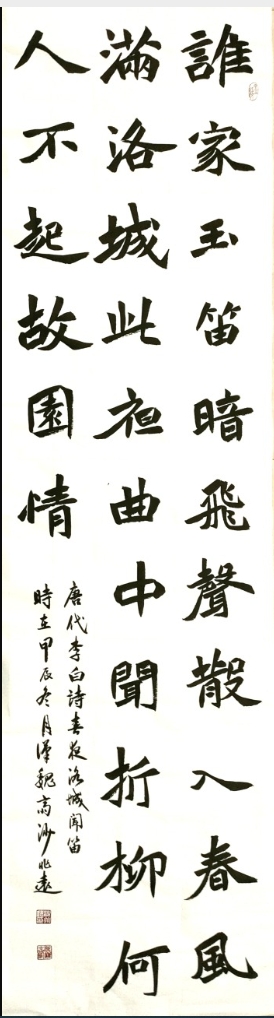 誰家玉笛暗飛聲散入春風
滿洛城此亱曲中聞折柳何
人不起故園情
唐代李白詩春夜洛城聞笛
時在甲辰冬月魏高沙兆遠